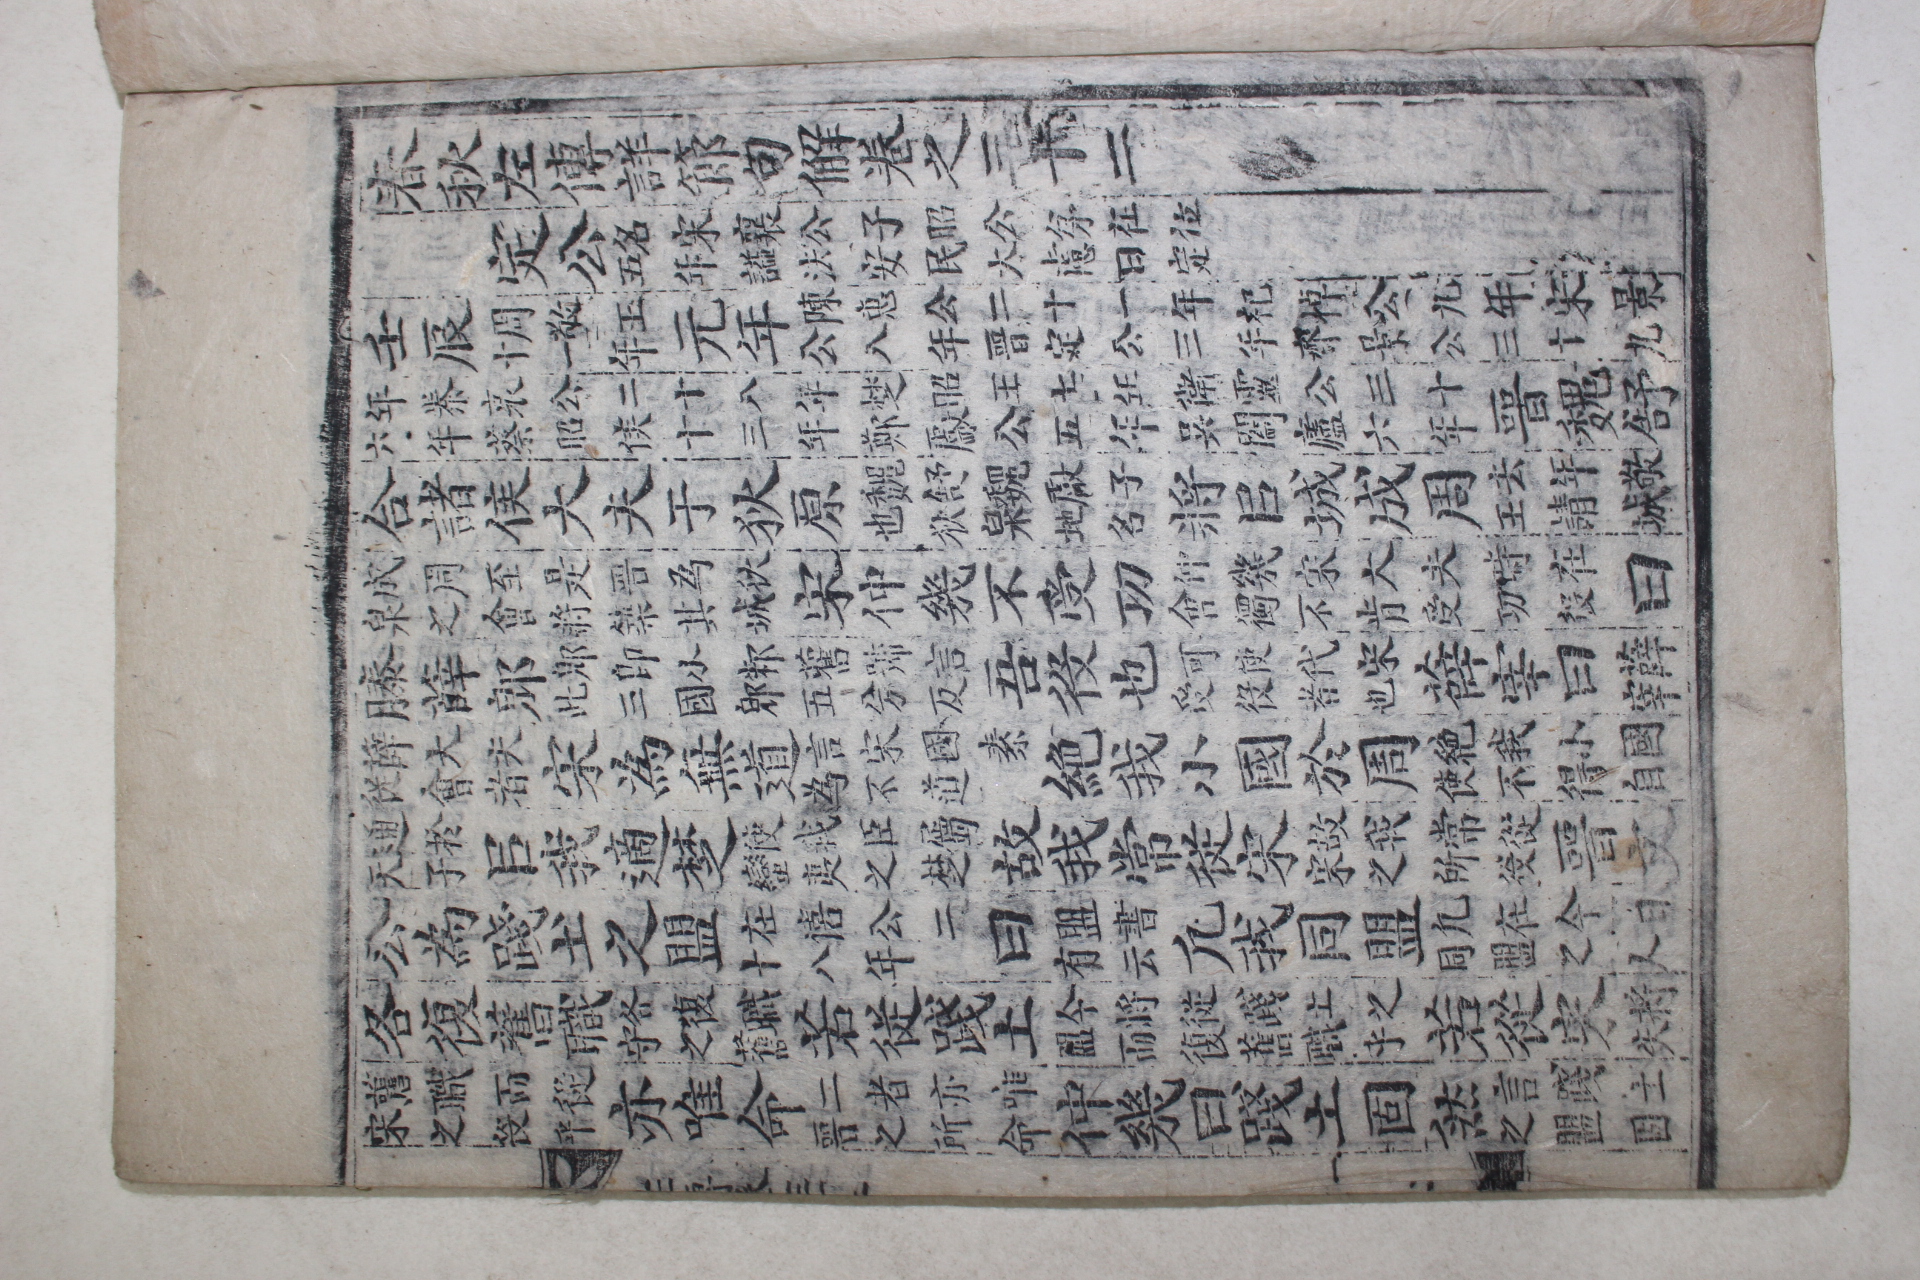 春秋左傳詳節句解卷之三十二
定公名宋襄公子昭公弟在位五年謚法安民大慮曰定
壬辰周敬王十一年元年陳惠公二十一年杞悼公九年宋景公八年晉定公三年齊景公三十九
年秦哀公二十八年楚昭王七年衛靈公三十六年蔡昭侯十三年鄭獻公五年吳闔廬六年晉魏舒
合諸侯大夫于狄原魏舒魏獻子也狄泉地名將㠯城成周去年敬王請城
成周至是晉為狄泉之會將築其城宋仲幾不受功仲幾宋大夫時在會獨不肯受功役曰
滕薛郳郳即小邾舊號言此三國郳五兮反吾役也可使代宋受役者也薛宰曰薛宰
薛大夫從會者宋為無道言宋國素為不道絕我小國於周絕我小國使不得自
通於天子㠯我適楚使我臣屬蠻夷之楚故我常從宋故我常從宋之所役晉文
公為踐土之盟在僖公二十八年曰盟書有云凡我同盟凡在今日同盟之人
各復舊職各復職守之舊若從踐土今將從踐土之盟而復舊職乎若從宋將失
舊職而從宋之役乎亦唯命二者亦唯晉之所命仲幾曰踐土固然言踐土之盟固